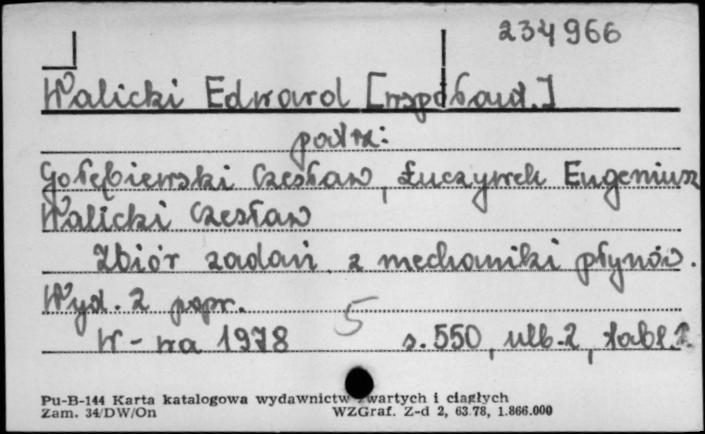 234966
Walicki Edward [współaut.]
patrz:
Gołębiewski Czesław, Łuczywek Eugeniusz
Walicki Czesław
Zbiór zadań z mechaniki płynów.
Wyd. 2 popr.
W-wa 1978 5 s. 550, ulb. 2, tabl. 1.
Pu-B-144 Karta katalogowa wydawnictw zwartych i ciągłych
Zam. 34/DW/On WZGraf. Z-d 2, 63.78, 1.866.000